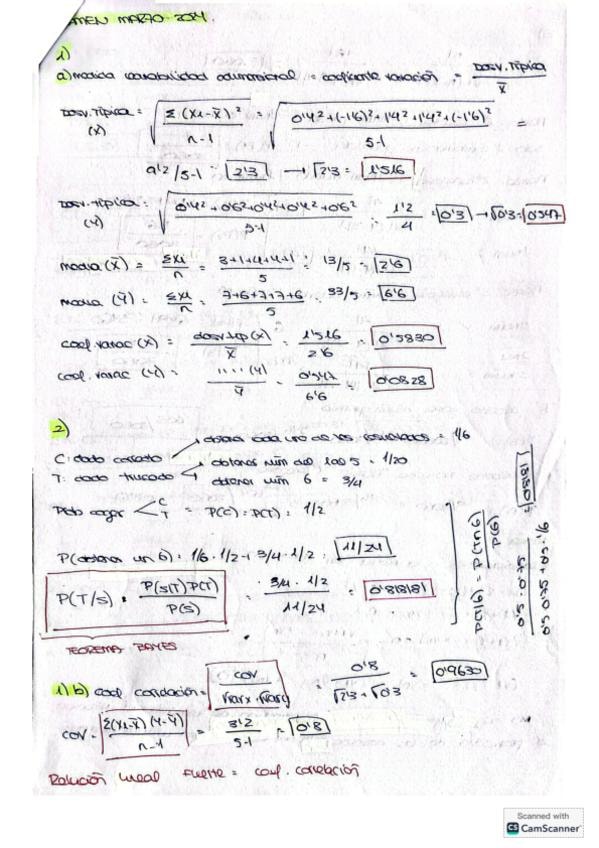 EXAMEN MARZO 2024.
1)
a) medida variabilidad adimensional = coeficiente variación = Desv. Típica / X̄
Desv. Típica (X) = √(Σ(xi-x̄)² / n-1) = √(0'4²+(-1'6)²+1'4²+1'4²+(-1'6)² / 5-1) =
9'2/5-1 = 2'3 → √2'3 = 1'516
Desv. típica (Y) = √(0'4²+0'6²+0'4²+0'4²+0'6² / 5-1) = 1'2/4 = 0'3 → √0'3 = 0'547
media (X̄) = Σxi/n = 3+1+4+4+1 / 5 = 13/5 = 2'6
media (Ȳ) = Σxi/n = 7+6+7+7+6 / 5 = 33/5 = 6'6
coef. variac (X) = desv. tip (x) / X̄ = 1'516 / 2'6 = 0'5830
coef. variac (Y) = " " " (Y) / Ȳ = 0'547 / 6'6 = 0'0828
2)
C: dado correcto → obtener cada uno de los resultados = 1/6
T: dado trucado → obtener núm del 1 al 5 = 1/20
obtener un 6 = 3/4
Prob coger < C T = P(C) = P(T) = 1/2
P(obtener un 6) = 1/6 · 1/2 + 3/4 · 1/2 = 11/24
P(T/S) = P(S|T) P(T) / P(S) = 3/4 · 1/2 / 11/24 = 0'818181
TEOREMA BAYES
P(T/6) = P(T∩6) / P(6) = 0'5 · 0'75 / 0'5 · 0'75 + 0'5 · 1/6 = 0'8181
1) b) coef. correlación = cov / √varx · √vary = 0'8 / √2'3 + √0'3 = 0'9630
cov = Σ(xi-x̄)(y-ȳ) / n-1 = 3'2 / 5-1 = 0'8
Relación lineal fuerte = coef. correlación
Scanned with
CS CamScanner